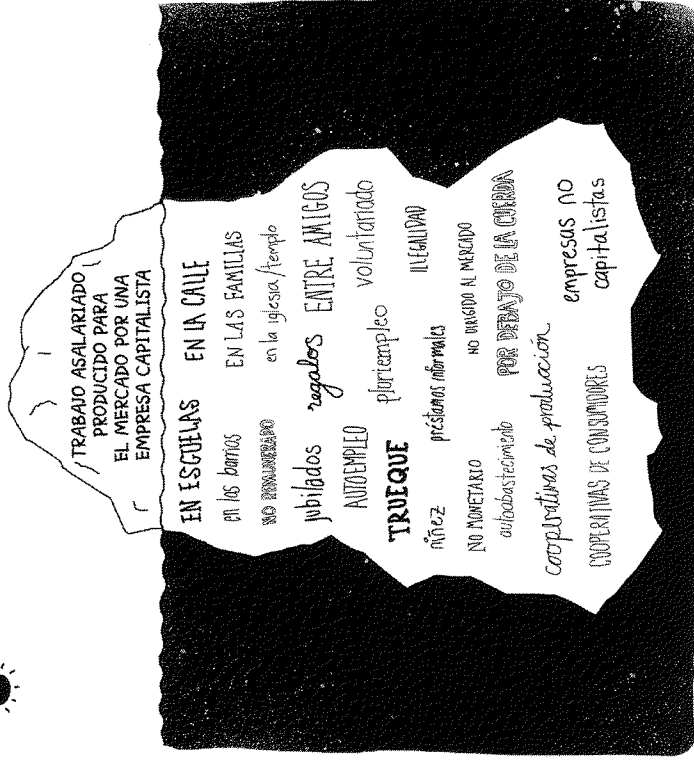 TRABAJO ASALARIADO
PRODUCIDO PARA
EL MERCADO POR UNA
EMPRESA CAPITALISTA
EN ESCUELAS EN LA CALLE
en los barrios EN LAS FAMILIAS
NO REMUNERADO en la iglesia/templo
jubilados regalos ENTRE AMIGOS
AUTOEMPLEO pluriempleo voluntariado
TRUEQUE ILEGALIDAD
niñez préstamos informales
NO MONETARIO NO DIRIGIDO AL MERCADO
autoabastecimiento POR DEBAJO DE LA CUERDA
cooperativas de producción
empresas no
capitalistas
COOPERATIVAS DE CONSUMIDORES